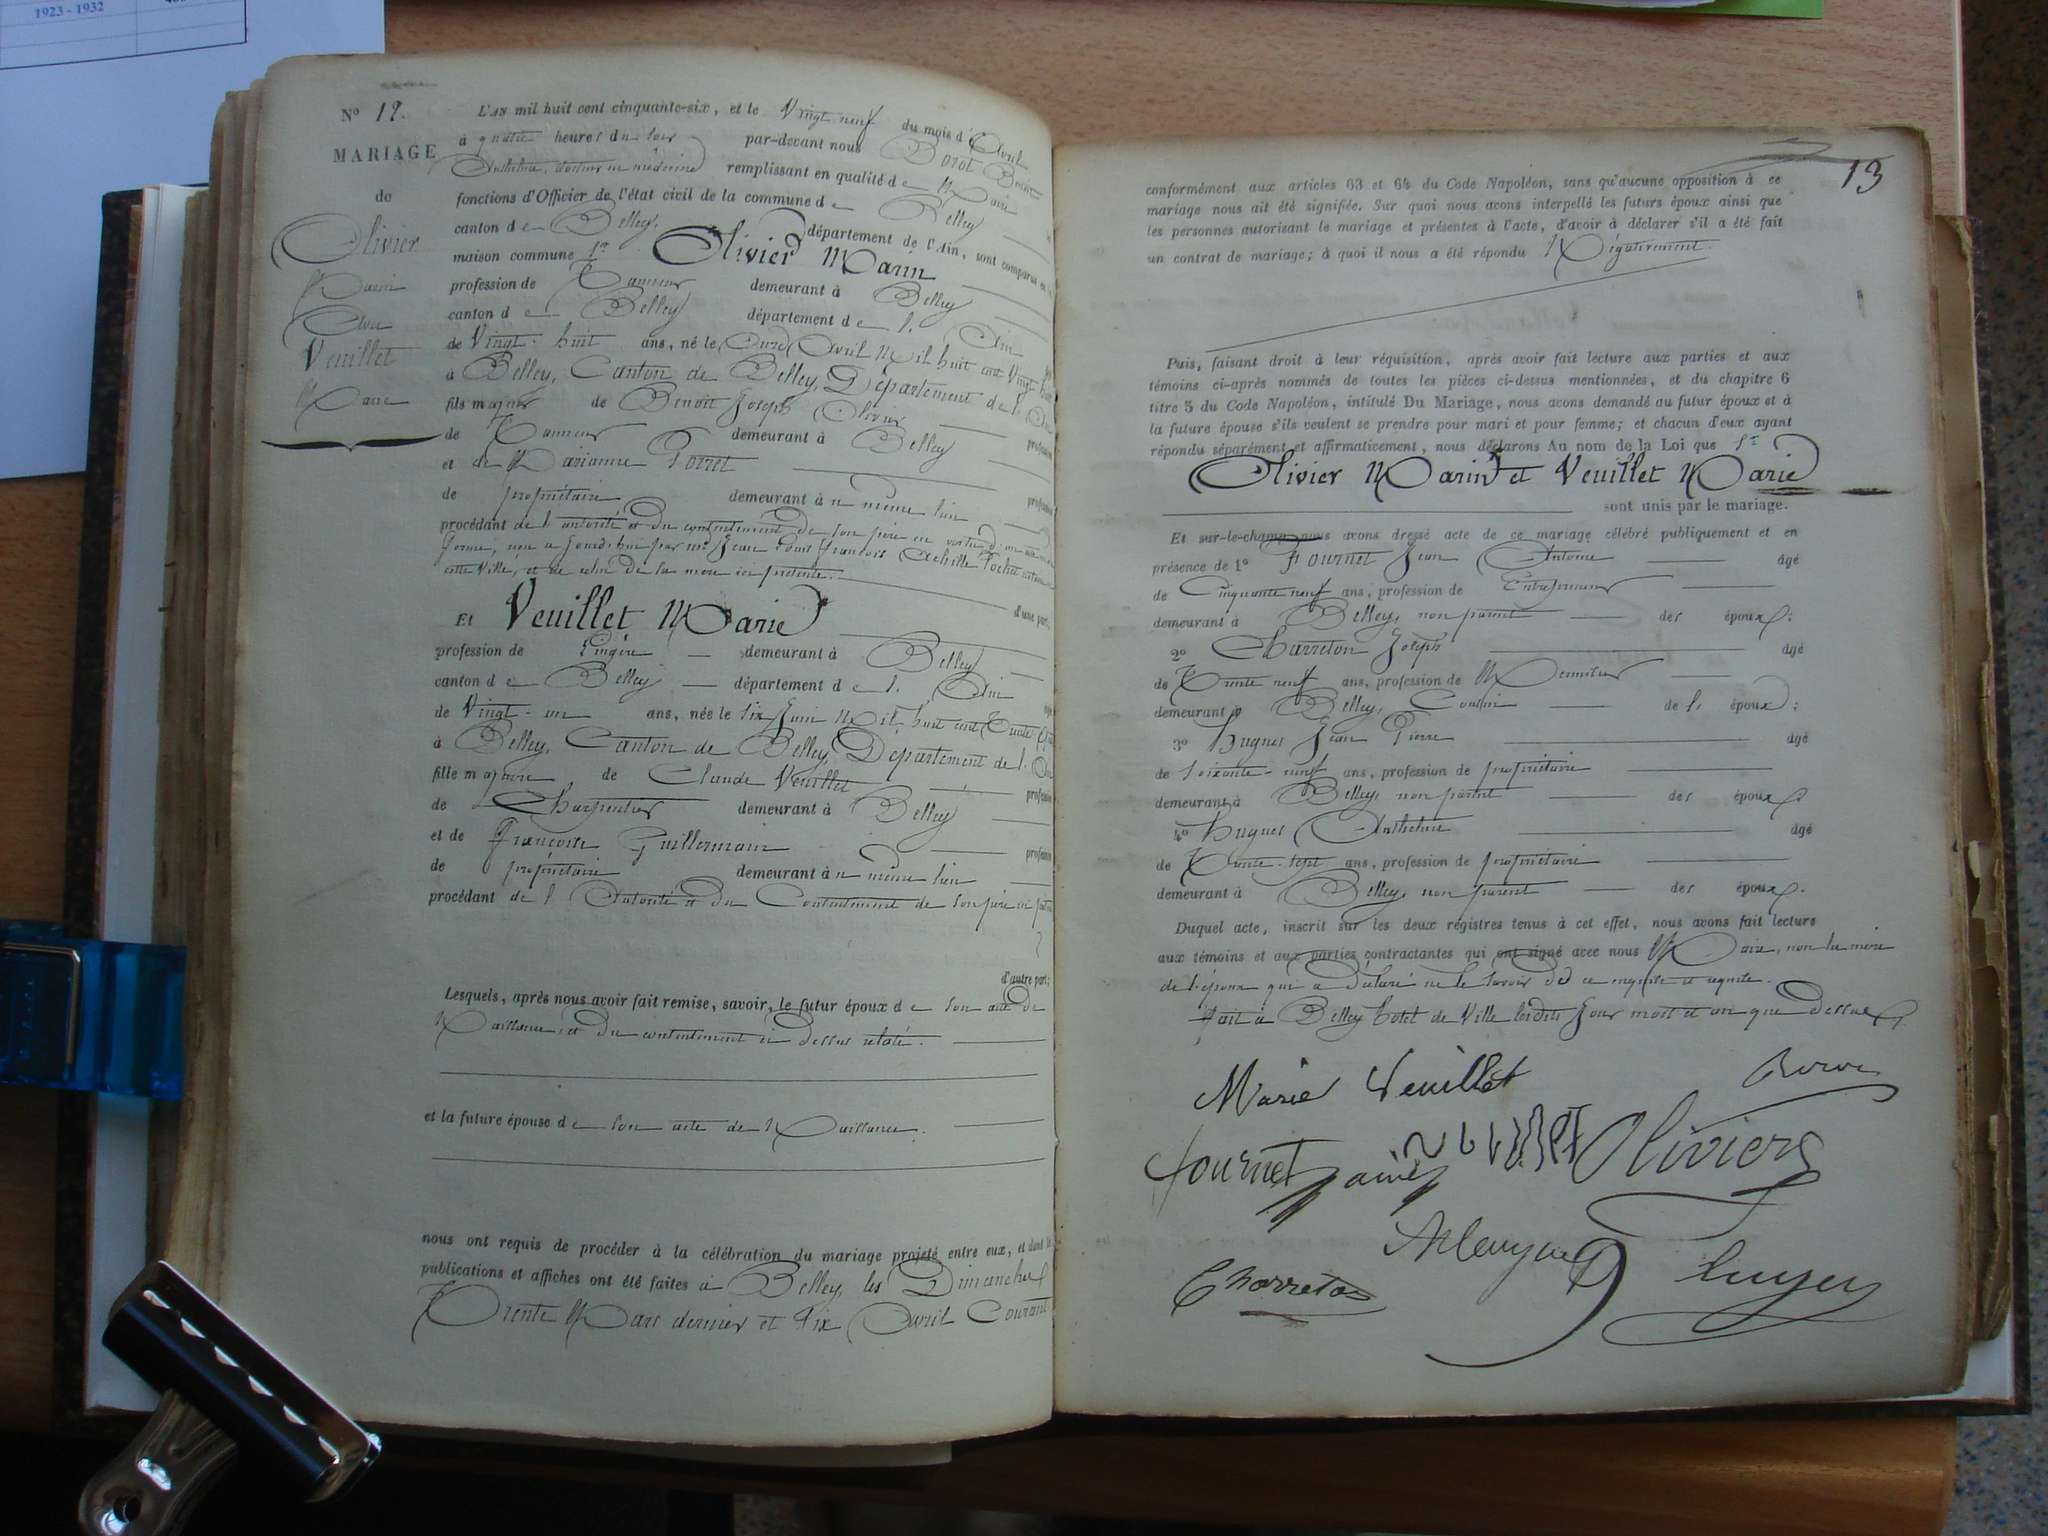 1923 - 1932
N° 17.
MARIAGE
de
Olivier
Marin
Avec
Veuillet
Marie
L'AN mil huit cent cinquante-six, et le Vingt neuf du mois d'Avril
à quatre heures du soir par-devant nous
Anthelme, docteur en médecine remplissant en qualité de Maire
fonctions d'Officier de l'état civil de la commune de Belley
canton de Belley, département de l'Ain, sont comparus en
maison commune 1° Olivier Marin
profession de Tanneur demeurant à Belley
canton de Belley département de l'Ain
de Vingt-huit ans, né le Onze Avril Mil huit cent Vingt huit
à Belley, Canton de Belley, Département de l'Ain
fils majeur de Benoit Joseph Olivier profession
de Tanneur demeurant à Belley
et de Marianne Porret profession
de propriétaire demeurant à même lieu
procédant de l'autorité et du consentement de son père en vertu d'un
cette Ville, et de celui de sa mère ici présente.
d'une part.
Et Veuillet Marie
profession de Lingère demeurant à Belley
canton de Belley département de l'Ain
de Vingt-un ans, née le six Juin Mil huit cent Trente
à Belley, Canton de Belley, Département de l'Ain
fille majeure de Claude Veuillet profession
de Charpentier demeurant à Belley
et de Françoise Guillermain profession
de propriétaire demeurant à même lieu
procédant de l'Autorité et du Consentement de son père ici
d'autre part;
Lesquels, après nous avoir fait remise, savoir, le futur époux de son acte de
Naissance, et du consentement ci dessus relaté.
et la future épouse de son acte de Naissance.
nous ont requis de procéder à la célébration du mariage projeté entre eux, et dont les
publications et affiches ont été faites à Belley, les Dimanches
Trente Mars dernier et Six Avril Courant
13
conformément aux articles 63 et 64 du Code Napoléon, sans qu'aucune opposition à ce
mariage nous ait été signifiée. Sur quoi nous avons interpellé les futurs époux ainsi que
les personnes autorisant le mariage et présentes à l'acte, d'avoir à déclarer s'il a été fait
un contrat de mariage; à quoi il nous a été répondu Négativement.
Puis, faisant droit à leur réquisition, après avoir fait lecture aux parties et aux
témoins ci-après nommés de toutes les pièces ci-dessus mentionnées, et du chapitre 6
titre 5 du Code Napoléon, intitulé Du Mariage, nous avons demandé au futur époux et à
la future épouse s'ils veulent se prendre pour mari et pour femme; et chacun d'eux ayant
répondu séparément et affirmativement, nous déclarons Au nom de la Loi que
Olivier Marin et Veuillet Marie
sont unis par le mariage.
Et sur-le-champ nous avons dressé acte de ce mariage célébré publiquement et en
présence de 1° Fournet Jean Antoine âgé
de Cinquante neuf ans, profession de Entrepreneur
demeurant à Belley, non parent des époux;
2° Charreton Joseph âgé
de Trente neuf ans, profession de Menuisier
demeurant à Belley, Cousin de l'époux;
3° Hugues Jean Pierre âgé
de soixante-neuf ans, profession de propriétaire
demeurant à Belley, non parent des époux;
4° Hugues Anthelme âgé
de Trente-sept ans, profession de propriétaire
demeurant à Belley, non parent des époux.
Duquel acte, inscrit sur les deux registres tenus à cet effet, nous avons fait lecture
aux témoins et aux parties contractantes qui ont signé avec nous Maire, non la mère
de l'époux qui a déclaré ne le savoir de ce enquise et requise.
Fait à Belley hotel de Ville lesdits Jour mois et an que dessus
Marie Veuillet
Fournet ainé Olivier
Charreton